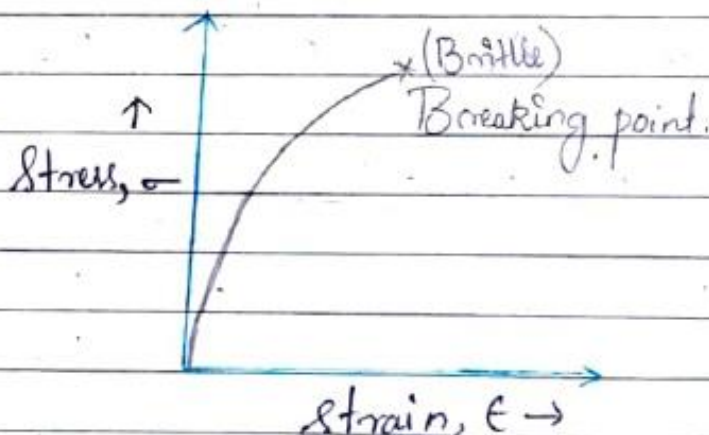 (Brittle)
Breaking point.
↑
Stress, σ
Strain, ε →